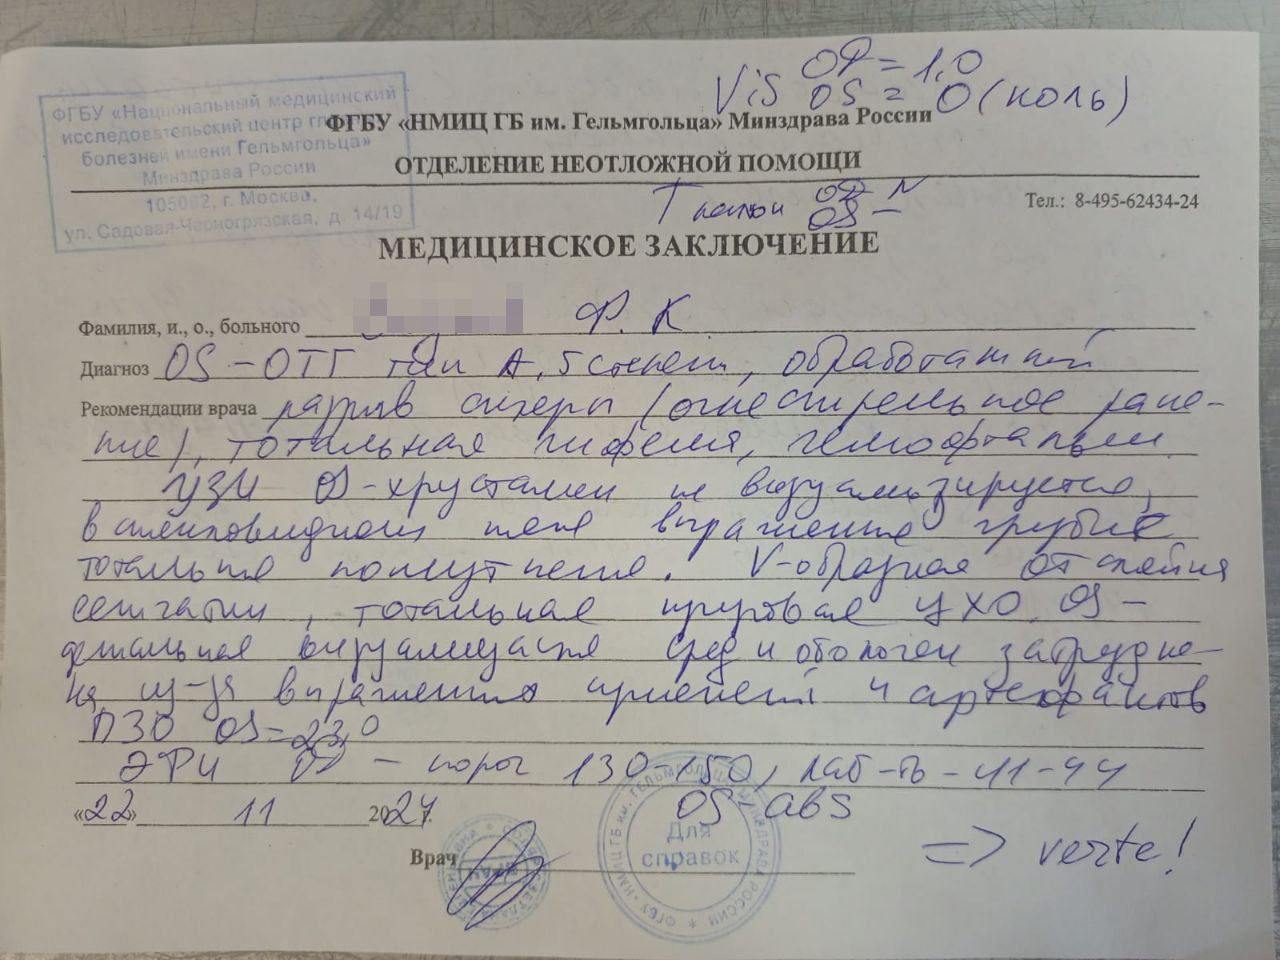 Vis OD = 1,0
OS = 0 (ноль)
ФГБУ «Национальный медицинский
исследовательский центр глазных
болезней имени Гельмгольца»
Минздрава России
105062, г. Москва,
ул. Садовая-Черногрязская, д. 14/19
ФГБУ «НМИЦ ГБ им. Гельмгольца» Минздрава России
ОТДЕЛЕНИЕ НЕОТЛОЖНОЙ ПОМОЩИ
Т пальп OD N
OS –
Тел.: 8-495-62434-24
МЕДИЦИНСКОЕ ЗАКЛЮЧЕНИЕ
Фамилия, и., о., больного Ф. К
Диагноз OS – ОТГ тип А, 5 степени, обработанный
Рекомендации врача разрыв склеры (огнестрельное ране-
ние), тотальная гифема, гемофтальм.
УЗИ OS – хрусталик не визуализируется,
в стекловидном теле выраженные грубые
тотальные помутнения. V-образная отслойка
сетчатки, тотальная круговая ЦХО. OS –
детальная визуализация сред и оболочек затрудне-
на из-за выраженных изменений и артефактов
ПЗО OS = 23,0
ЭФИ OD – порог 130-150, лаб-ть – 41-44
OS abs
«22» 11 2024г.
Врач
Для
справок
=> verte!